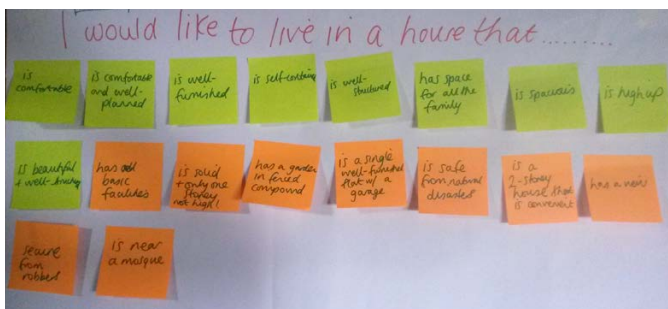 I would like to live in a house that.........
is
comfortable
is comfortable
and well-
planned
is well-
furnished
is self-contained
is well-
structured
has space
for all the
family
is spacious
is high up
is beautiful
+ well-
has all
basic
facilities
is solid
+ only one
storey
not high!
has a garden
in fenced
compound
is a single
well-furnished
flat w/ a
garage
is safe
from natural
disasters
is a
2-storey
house that
is convenient
has a view
secure
from
robbers
is near
a mosque